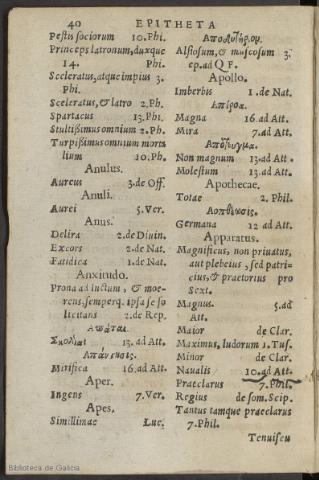 40 EPITHETA
Pestis sociorum 10. Phi.
Princeps latronum, duxque
14. Phi.
Sceleratus, atque impius 3.
Phi.
Sceleratus, & latro 2. Ph.
Spartacus 13. Phi.
Stultißimus omnium 2. Ph.
Turpißimus omnium morta
lium 10. Ph.
Anulus.
Aureus 3. de Off.
Anuli.
Aurei 5. Ver.
Anus.
Delira 2. de Diuin.
Excors 2. de Nat.
Fatidica 1. de Nat.
Anxitudo.
Prona ad luctum, & moe-
rens, semperq. ipsa se so
licitans 2. de Rep.
Ἀπάται.
Σκολιαὶ 13. ad Att.
Mirifica 16. ad Att.
Aper.
Ingens 7. Ver.
Apes.
Simillimae Luc.
Alsiosum, & muscosum 3.
ep. ad Q. F.
Apollo.
Imberbis 1. de Nat.
Magna 16. ad Att.
Mira 7. ad Att.
Non magnum 13. ad Att.
Molestum 13. ad Att.
Apothecae.
Totae 2. Phil.
Germana 12 ad Att.
Apparatus.
Magnificus, non priuatus,
aut plebeius, sed patri-
cius, & praetorius pro
Sext.
Magnus. 5. ad
Att.
Maior de Clar.
Maximus, ludorum 1. Tus.
Minor de Clar.
Naualis 10. ad Att.
Praeclarus 7. Phil.
Regius de som. Scip.
Tantus tamque praeclarus
7. Phil.
Tenuiscu
Biblioteca de Galicia